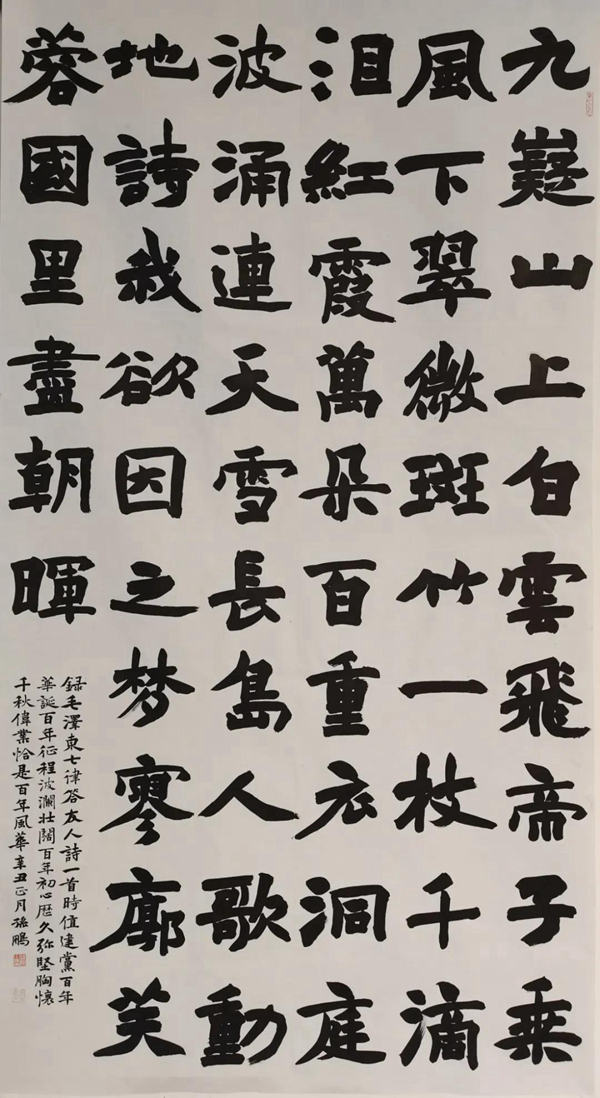 九嶷山上白雲飛帝子乘
風下翠微斑竹一枝千滴
泪紅霞萬朵百重衣洞庭
波涌連天雪長島人歌動
地詩我欲因之梦寥廓芙
蓉國里盡朝暉
録毛澤東七律答友人詩一首時值建黨百年
華誕百年征程波瀾壯闊百年初心歷久弥堅胸懷
千秋偉業恰是百年風華辛丑正月張鵬